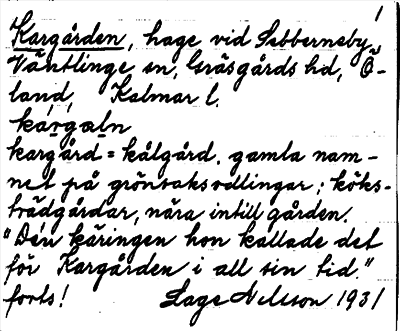 1
Kargården, hage vid Sebberneby,
Väntlinge sn, Gräsgårds hd, Ö-
land, Kalmar l.
kárgaln
kargård = kålgård, gamla nam-
net på grönsaksodlingar; köks-
trädgårdar, nära intill gården.
"Den käringen hon kallade det
för Kargården i all sin tid."
forts! Lage Nilsson 1931